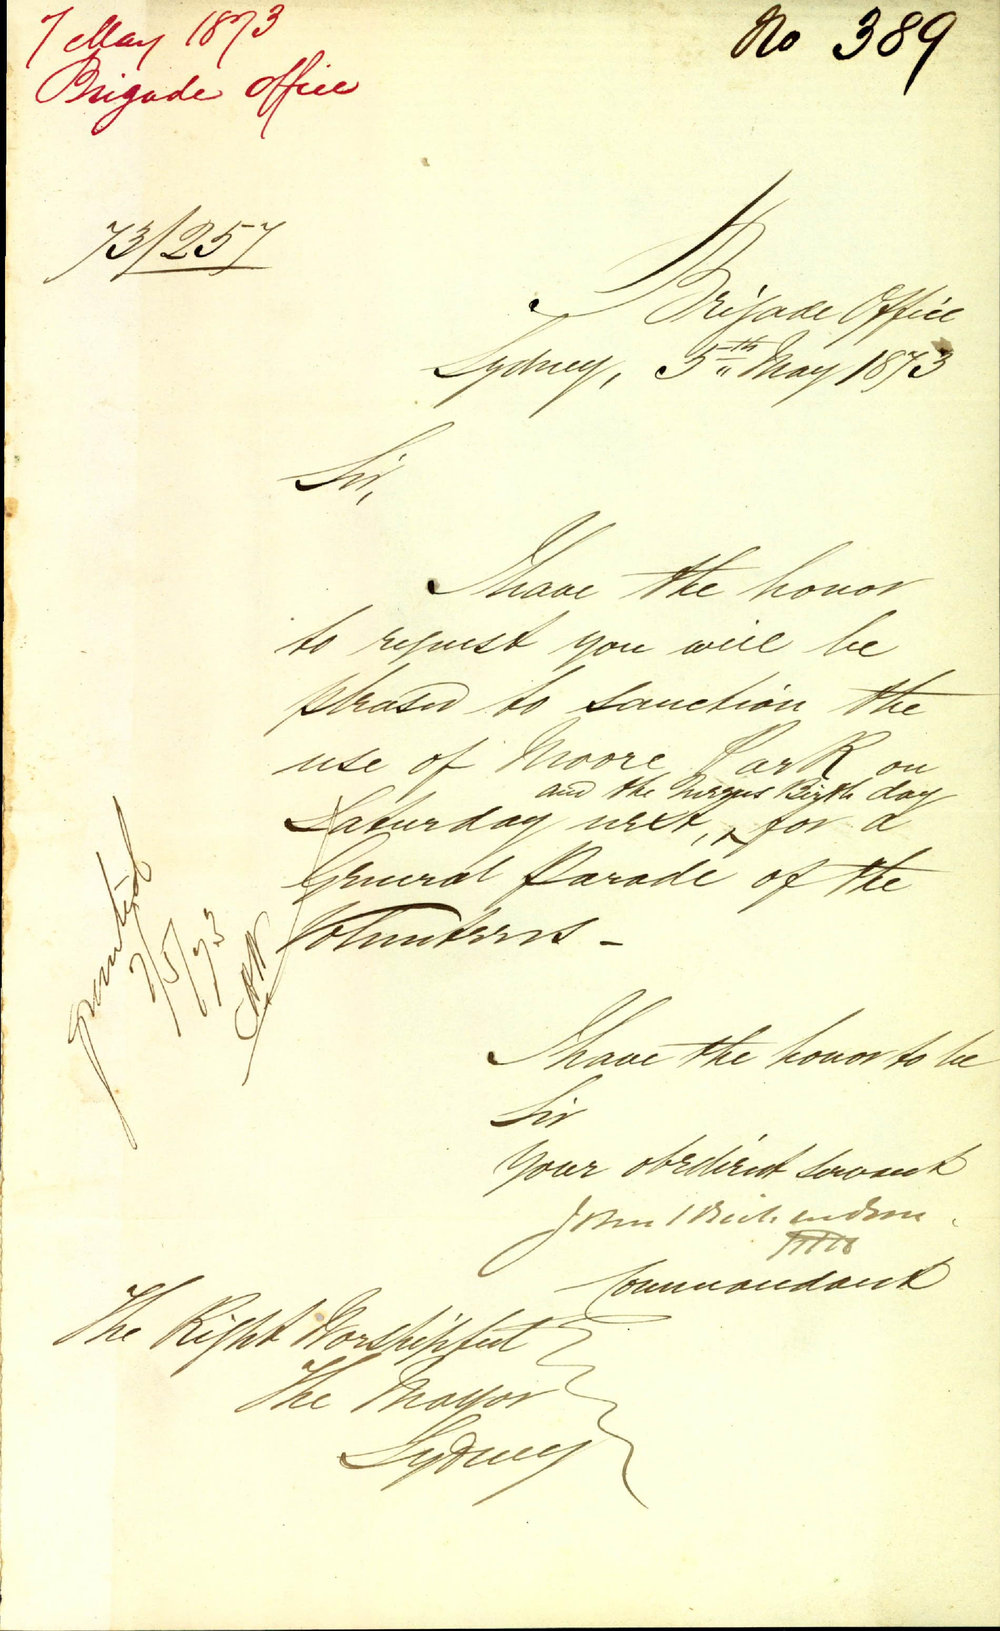 7 May 1873
Brigade Office
No 389
73/257
Brigade Office
Sydney, 5th May 1873
Sir,
I have the honor
to request you will be
pleased to sanction the
use of Moore Park on
and the Queens Birth day
Saturday next, for a
General Parade of the
Volunteers -
granted
7/5/73
I have the honor to be
Sir
Your obedient servant
John Richardson
Commandant
The Right Worshipful
The Mayor
Sydney